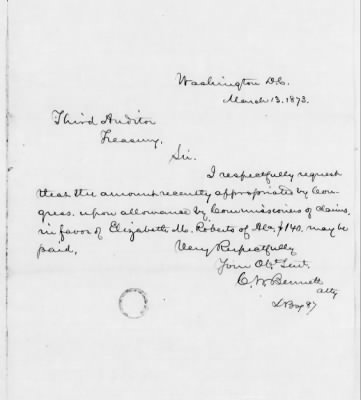 Washington D.C.
March 13, 1873.
Third Auditor
Treasury,
Sir.
I respectfully request
that the amount recently appropriated by Con-
gress, upon allowance by Commissioners of Claims,
in favor of Elizabeth M. Roberts of $140. may be
paid.
Very Respectfully
Your Obt Servt.
C. W. Bennett
Atty
Box 97